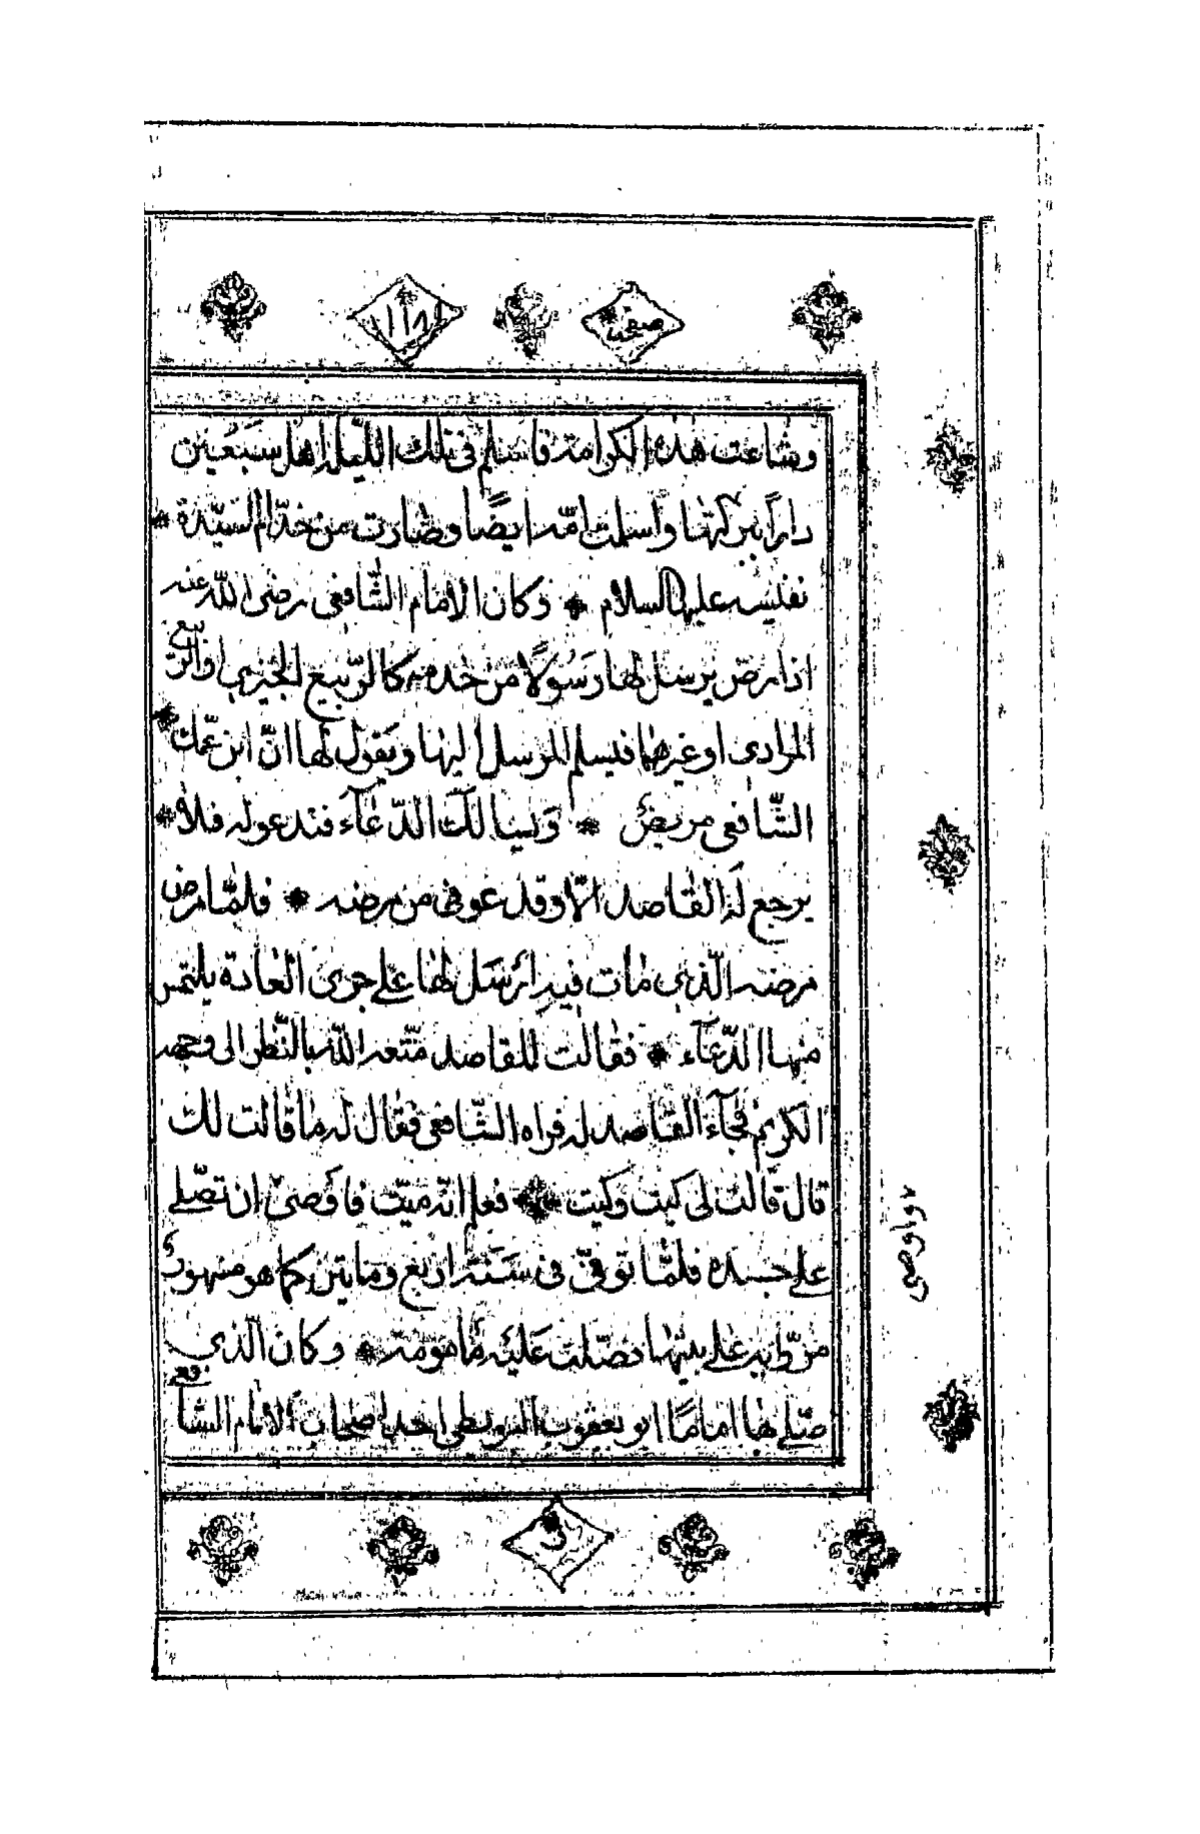 صفحة ١١٨
وشاعت هذه الكرامة فاسلم فى تلك الليلة اهل سبعين
داراً ببركتها واسلمت امّه ايضًا وصارت من خدّام السيّدة *
نفيسه عليها السلام * وكان الامام الشّافعى رضى اللّه عنه
اذا مرض يرسل لها رسولًا من خدمه كالرّبيع الجيزى او الربيع
المرادى او غيرهما فيسلم المرسل اليها ويقول لها انّ ابن عمّك *
الشّافعى مريض * ويسالك الدّعآء فتدعو له فلا *
يرجع له القاصد الّا وقد عوفى من مرضه * فلمّا مرض
مرضه الّذى مات فيه ارسل لها على جرى العادة يلتمس
منها الدّعآء * فقالت للقاصد متّعه اللّه بالنّظر الى وجهه
الكريم فجآء القاصد له فراه الشّافعى فقال له ما قالت لك
قال قالت لى كيت وكيت * فعلم انّه ميّت فاوصى ان تصّلى
على جسده فلمّا توفّى فى سنة اربع ومايتين كما هو مشهور
مرّوا به على بيتها فصّلت عليه مامومة * وكان الّذى
صّلى بها امامًا ابو يعقوب البويطى احد اصحاب الامام الشافعى
واوصى